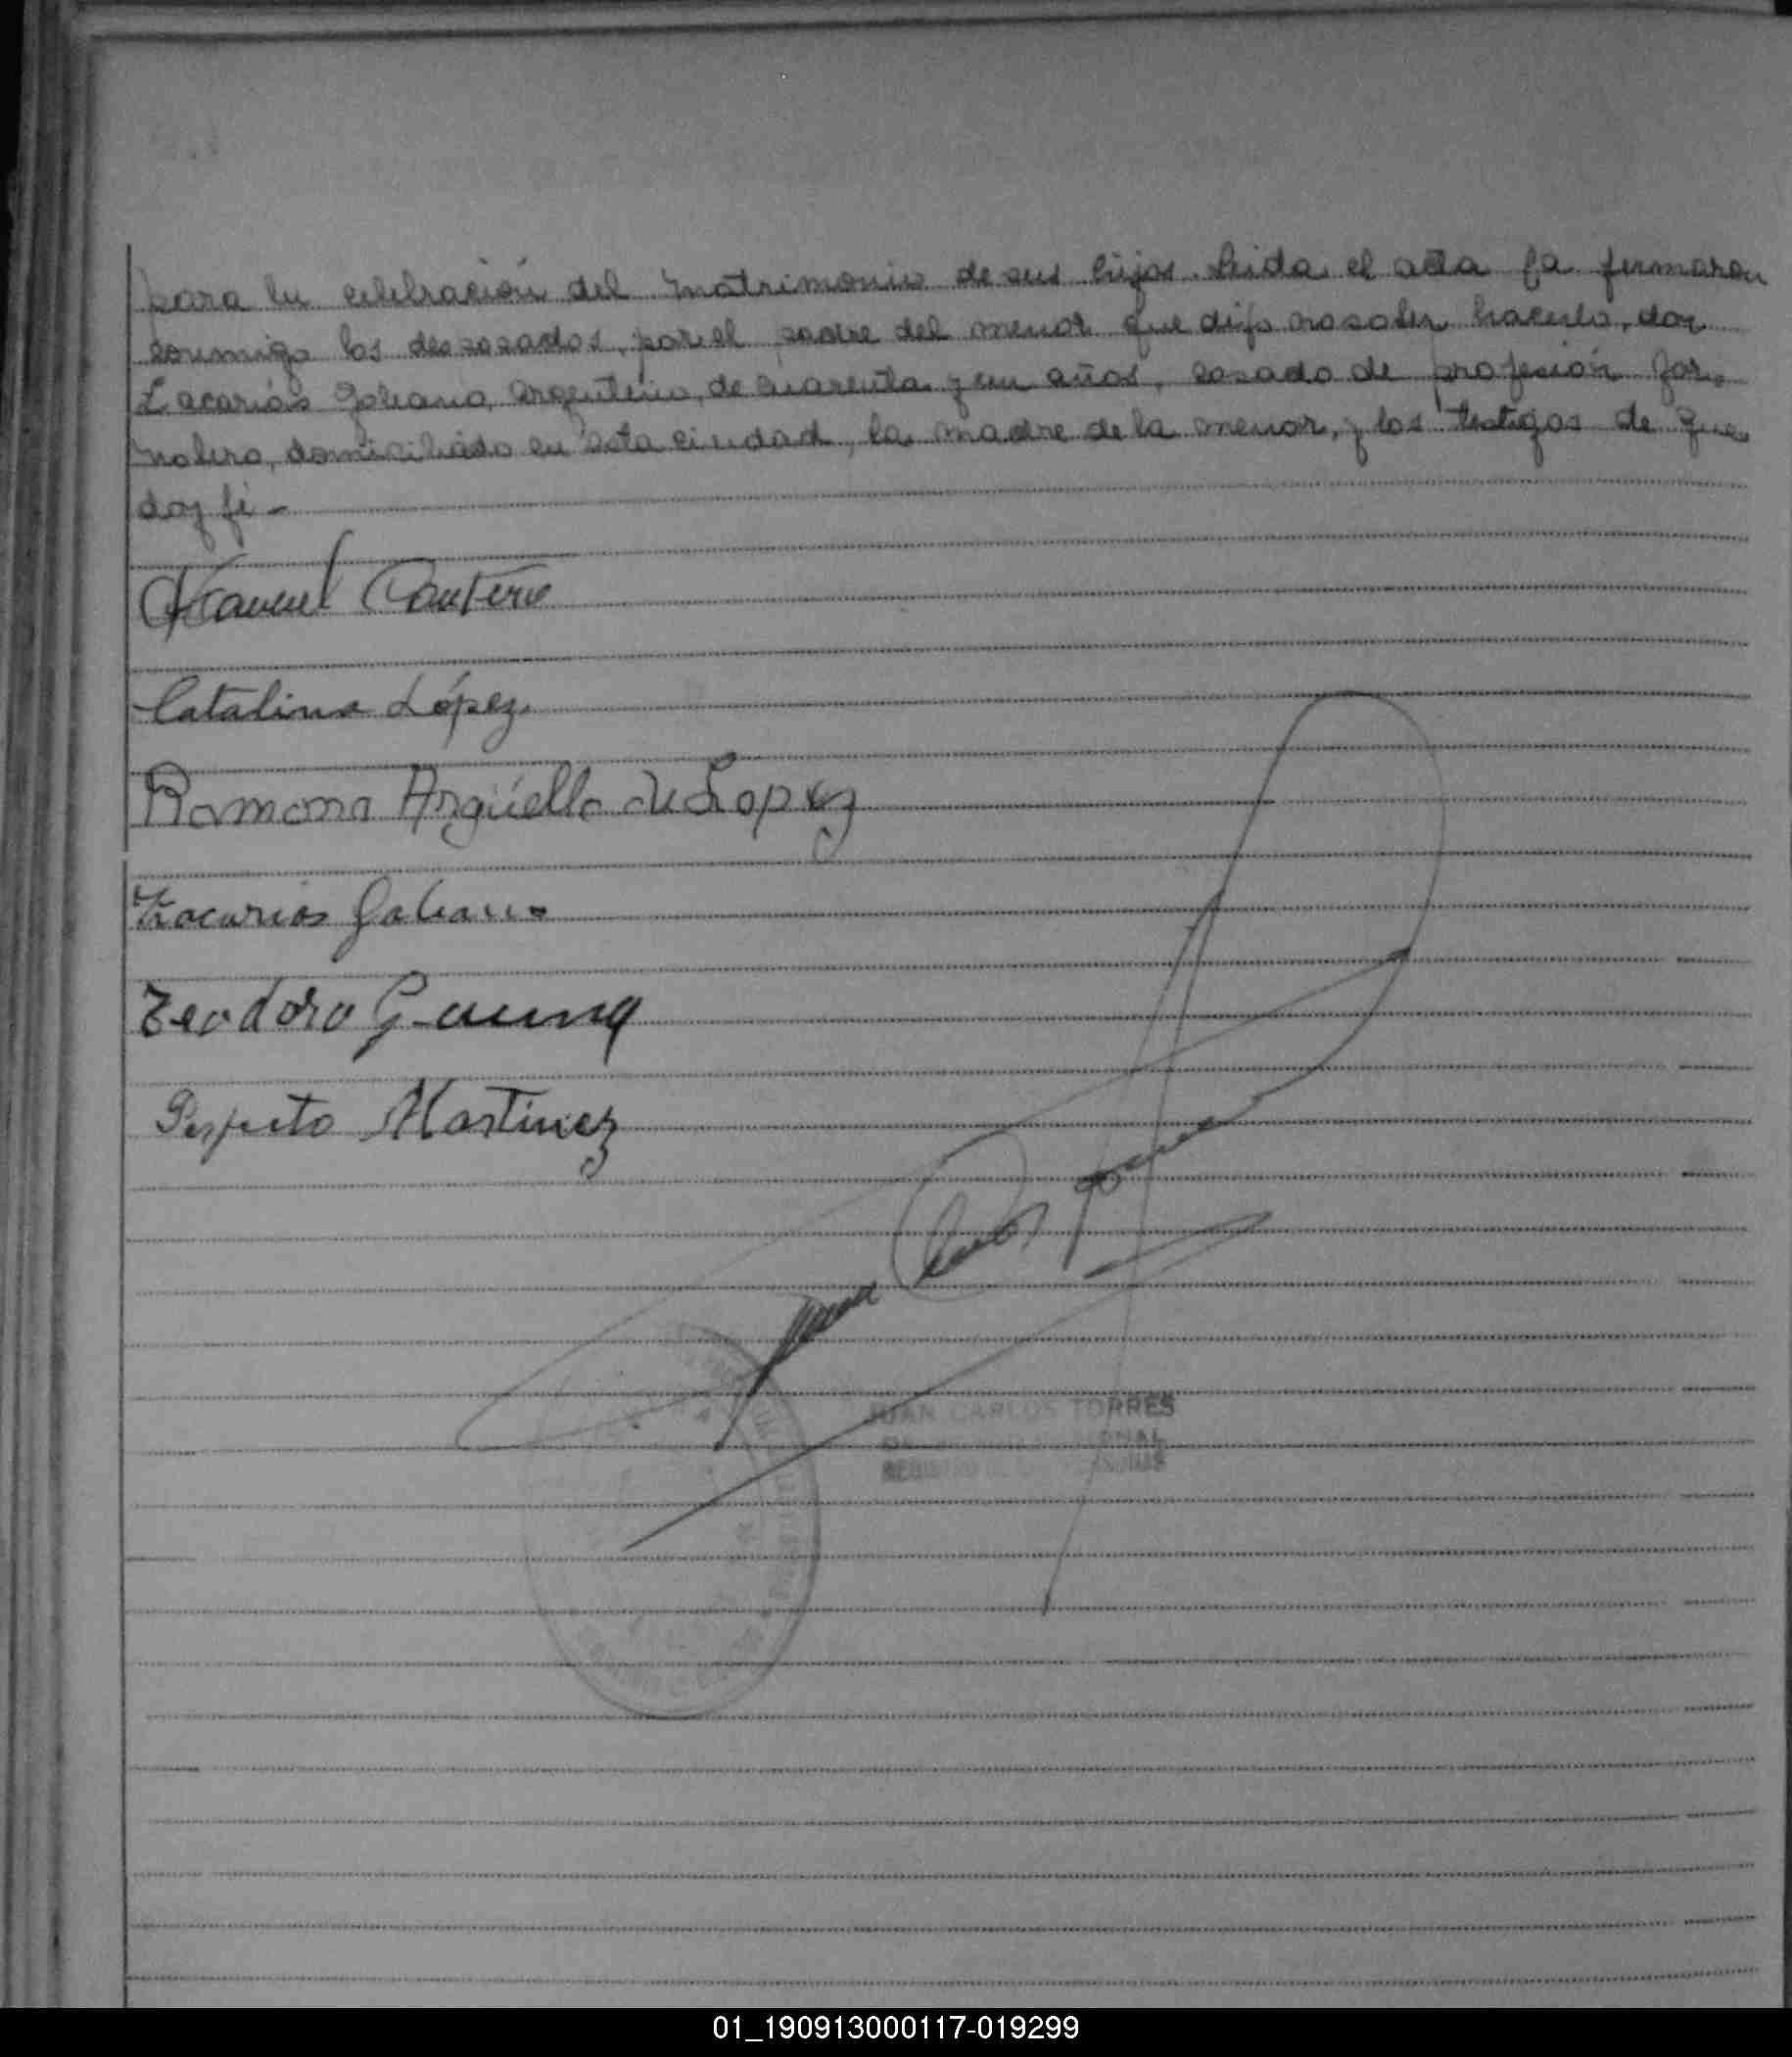 para la celebración del matrimonio de sus hijos. Leida el acta la firmaron
conmigo los desposados, por el padre del menor que dijo no saber hacerlo, don
Zacarías Galeano, argentino, de cuarenta y un años, casado de profesión jor-
nalero, domiciliado en esta ciudad, la madre de la menor, y los testigos de que
doy fé -
Manuel Cantero
Catalina López
Ramona Argüello de Lopez
Zacarias Galeano
Teodoro Gauna
Perfecto Martinez
JUAN CARLOS TORRES
01_190913000117-019299